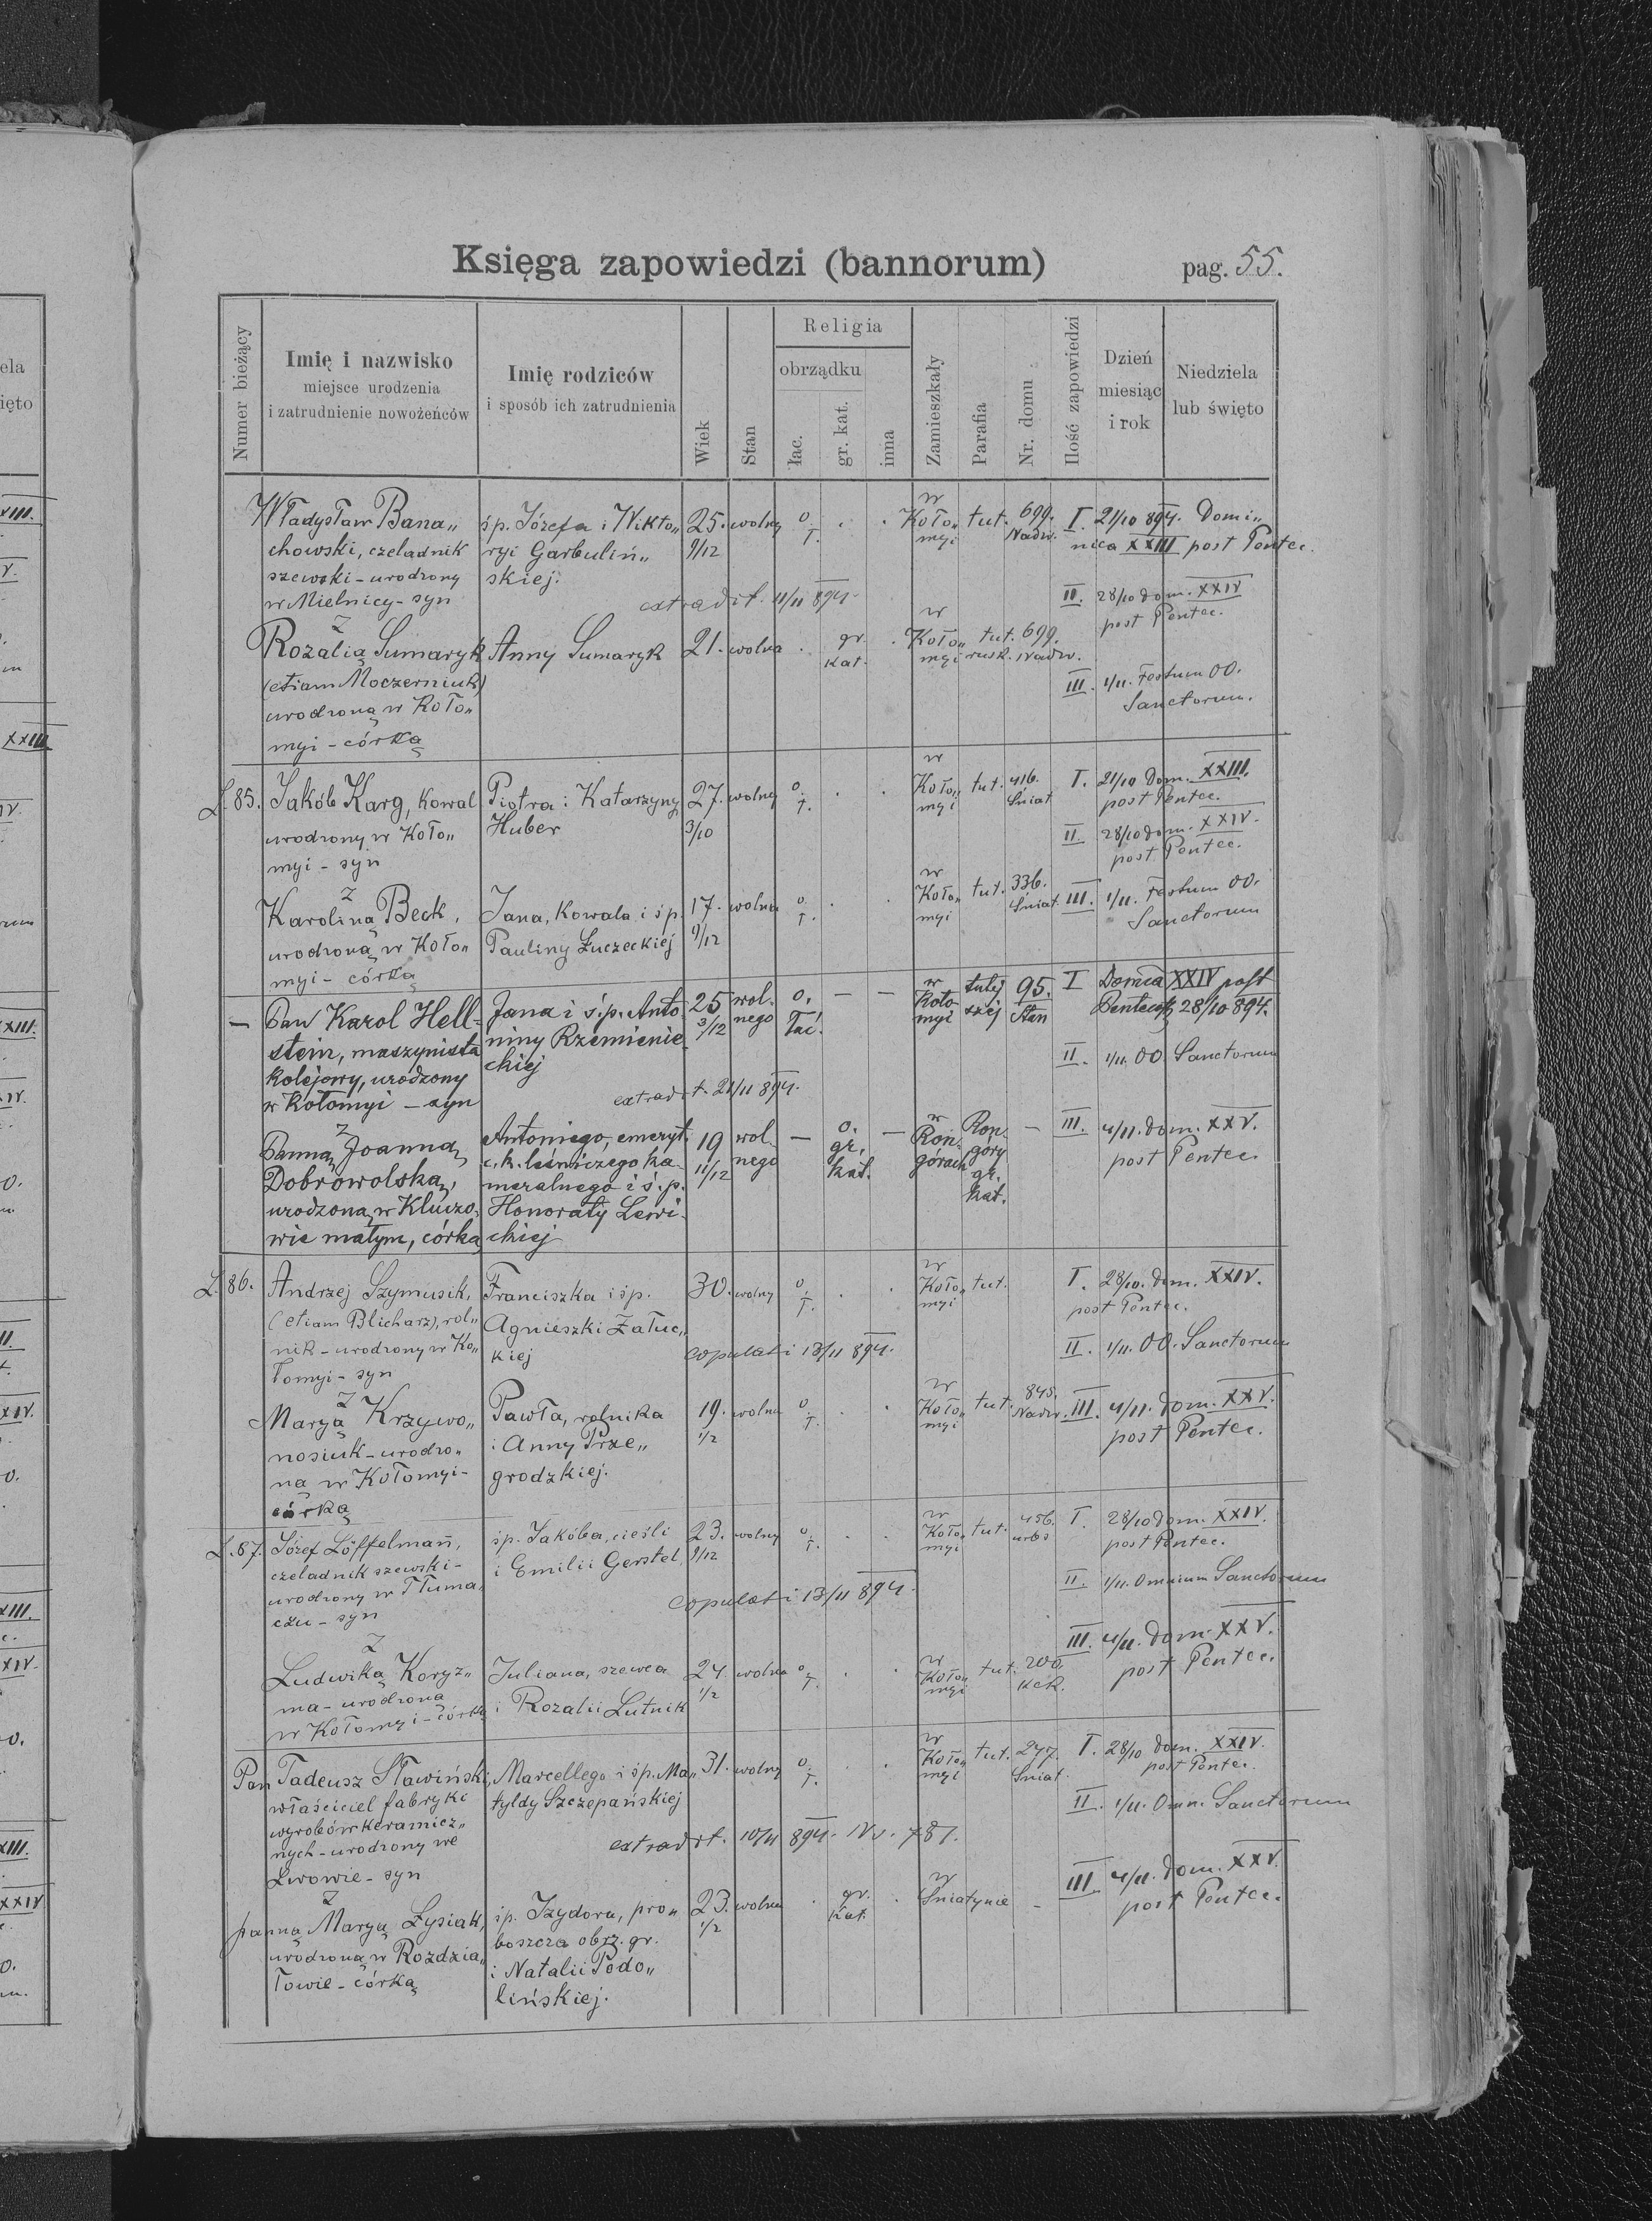 Księga zapowiedzi (bannorum)
pag. 55.
Numer bieżący
Imię i nazwisko
miejsce urodzenia
i zatrudnienie nowożeńców
Imię rodziców
i sposób ich zatrudnienia
Wiek
Stan
Religia
obrządku
łac.
gr. kat.
inna
Zamieszkały
Parafia
Nr. domu
Ilość zapowiedzi
Dzień
miesiąc
i rok
Niedziela
lub święto
Władysław Bana„
chowski, czeladnik
szewski - urodzony
w Mielnicy - syn
śp. Józefa i Wikto„
ryi Garbuliń„
skiej.
25. 9/12
wolny
o. ł.
w Koło„
myi
tut.
699.
Nadw.
I. 21/10 894. Domi„
nica XXIII post Pentec.
extradit. 11/11 894.
II. 28/10 dom. XXIV
post Pentec.
z
Rozalią Sumaryk
(etiam Moczerniuk)
urodzoną w Koło„
myi - córką
Anny Sumaryk
21.
wolna
gr.
kat.
w Koło„
myi
tut.
rusk.
699.
Nadw.
III. 1/11. Festum OO.
Sanctorum.
L. 85.
Jakób Karg, kowal
urodzony w Koło„
myi - syn
Piotra i Katarzyny
Huber
27. 3/10
wolny
o. ł.
w Koło„
myi
tut.
416.
Śniat
I. 21/10 Dom. XXIII.
post Pentec.
II. 28/10 dom. XXIV.
post Pentec.
z
Karoliną Beck,
urodzoną w Koło„
myi - córką
Jana, kowala i śp.
Pauliny Łuczeckiej
17. 9/12
wolna
o. ł.
w Koło„
myi
tut.
336.
Śniat.
III. 1/11. Festum OO.
Sanctorum
—
Pan Karol Hell-
stein, maszynista
kolejowy, urodzony
w Kołomyi - syn
Jana i ś.p. Anto
niny Rzemienie
ckiej
25 3/12
wol.
nego
o.
łać.
— —
w Koło
myi
tutej
szej
95.
Stan
I Domca XXIV post
Pentecst 28/10 894.
II. 1/11. OO. Sanctorum
extradit. 21/11 894.
z
Panną Joanną
Dobrowolską,
urodzoną w Kluczo„
wie małym, córką
Antoniego, emeryt.
c. k. leśniczego ka-
meralnego i ś.p.
Honoraty Lewi-
ckiej
19 11/12
wol.
nego
—
o.
gr.
kat.
—
w
Ron-
górach
Ron-
góry
gr.
kat.
—
III. 4/11. dom. XXV.
post Pentec.
L. 86.
Andrzej Szymusik,
(etiam Blicharz), rol„
nik - urodzony w Ko„
łomyi - syn
Franciszka i śp.
Agnieszki Załuc„
kiej
30.
wolny
o. ł.
w Koło„
myi
tut.
I. 28/10. dom. XXIV.
post Pentec.
copulati 13/11 894.
II. 1/11. OO. Sanctorum
z
Maryą Krzywo„
nosiuk - urodzo„
ną w Kołomyi -
córką
Pawła, rolnika
i Anny Prze„
grodzkiej.
19. 1/2
wolna
o. ł.
w Koło„
myi
tut.
845.
Nadw.
III. 4/11. dom. XXV.
post Pentec.
L. 87.
Józef Löffelmañ,
czeladnik szewski -
urodzony w Tłuma„
czu - syn
śp. Jakóba, cieśli
i Emilii Gerstel
23. 9/12
wolny
o. ł.
w Koło„
myi
tut.
456.
urbs
I. 28/10 dom. XXIV.
post Pentec.
II. 1/11. Omnium Sanctorum
copulati 13/11 894.
III. 4/11. dom. XXV.
post Pentec.
z
Ludwiką Koryz„
ma - urodzoną
w Kołomyi - córką
Juliana, szewca
i Rozalii Lutnik
24. 1/2
wolna
o. ł.
w Koło„
myi
tut.
200.
Kck.
Pan Tadeusz Sławiński,
właściciel fabryki
wyrobów keramicz„
nych - urodzony we
Lwowie - syn
Marcellego i śp. Ma„
tyldy Szczepańskiej
31.
wolny
o. ł.
w Koło„
myi
tut.
247.
Śniat.
I. 28/10 dom. XXIV.
post Pentec.
II. 1/11. Omn. Sanctorum
extradit. 10/11 894. Nr. 787.
z
panną Maryą Łysiak,
urodzoną w Rozdzia„
łowie - córką
śp. Izydora, pro„
boszcza obrz. gr.
i Natalii Podo„
lińskiej.
23. 1/2
wolna
gr.
kat.
w
Śniatynie
-
III 4/11. dom. XXV.
post Pentec.